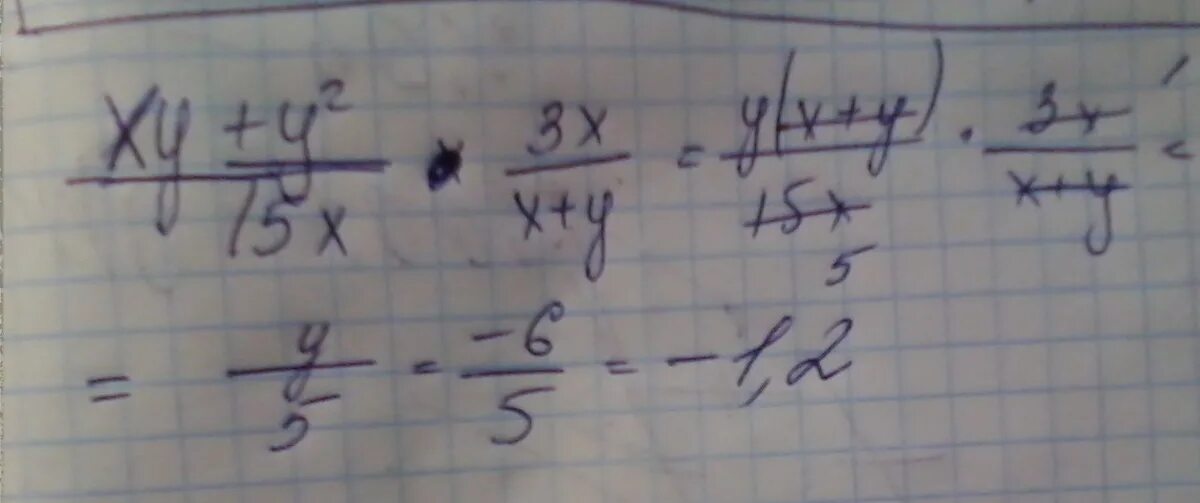 (xy + y²)/(15x) · (3x)/(x+y) = (y(x+y))/(15x) 5 · (3x)/(x+y) 1 =
= y/5 = -6/5 = -1,2